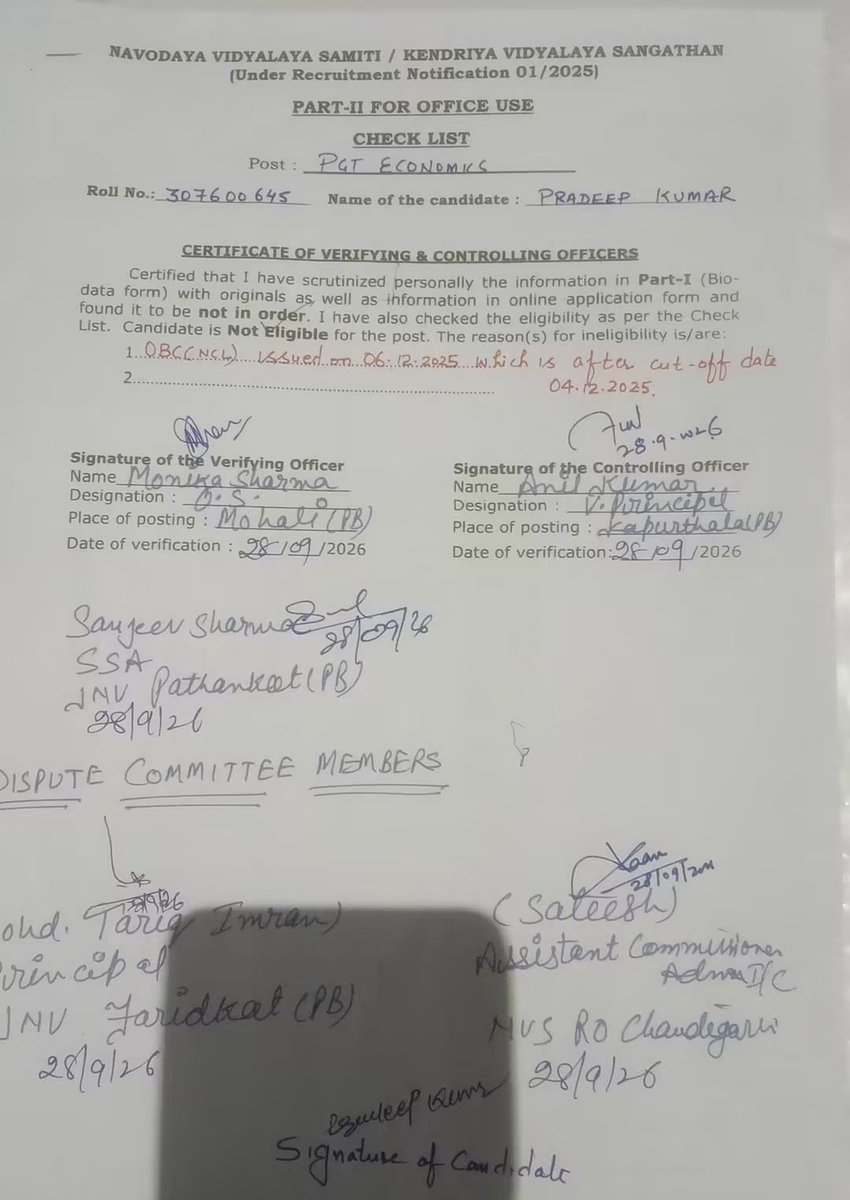 NAVODAYA VIDYALAYA SAMITI / KENDRIYA VIDYALAYA SANGATHAN
(Under Recruitment Notification 01/2025)
PART-II FOR OFFICE USE
CHECK LIST
Post : PGT ECONOMICS
Roll No.: 307600645 Name of the candidate : PRADEEP KUMAR
CERTIFICATE OF VERIFYING & CONTROLLING OFFICERS
Certified that I have scrutinized personally the information in Part-I (Bio-
data form) with originals as well as information in online application form and
found it to be not in order. I have also checked the eligibility as per the Check
List. Candidate is Not Eligible for the post. The reason(s) for ineligibility is/are:
1. OBC(NCL) issued on 06.12.2025 which is after cut-off date
2. 04.12.2025.
28.9.2026
Signature of the Verifying Officer Signature of the Controlling Officer
Name Monika Sharma Name Anil Kumar
Designation : O.S. Designation : V. Principal
Place of posting : Mohali (PB) Place of posting : Kapurthala(PB)
Date of verification : 28/09/2026 Date of verification: 28/09/2026
Sanjeev Sharma 28/09/26
SSA
JNV Pathankot (PB)
28/9/26
DISPUTE COMMITTEE MEMBERS
28/09/20
ohd. Tariq Imran) (Sateesh)
rincipal Assistant Commissioner
Admn I/C
JNV Faridkot (PB) NVS RO Chandigarh
28/9/26 28/9/26
Signature of Candidate